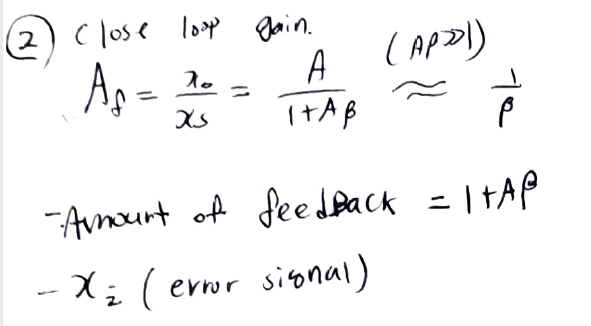 ② Close loop gain.
A_f = x_o / x_s = A / (1+Aβ) ≈ 1/β (Aβ>>1)
- Amount of feedback = 1+Aβ
- x_i (error signal)